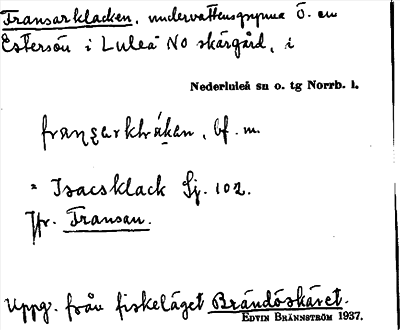 Fransarklacken, undervattensgrynna Ö. om
Estersön i Luleå NO skärgård, i
Nederluleå sn o. tg Norrb. l.
bf. m.
= Isacsklack Sj. 102.
Jfr. Fransan.
Uppg. från fiskeläget Brändöskäret.
EDVIN BRÄNNSTRÖM 1937.